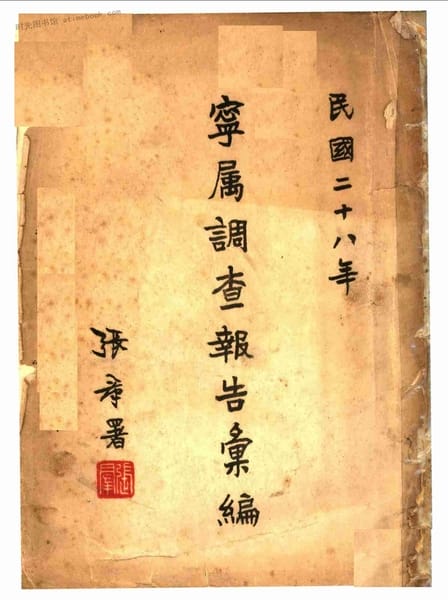 时光图书馆 atimebook.com
民國二十八年
寧属調查報告彙編
張羣署
張羣